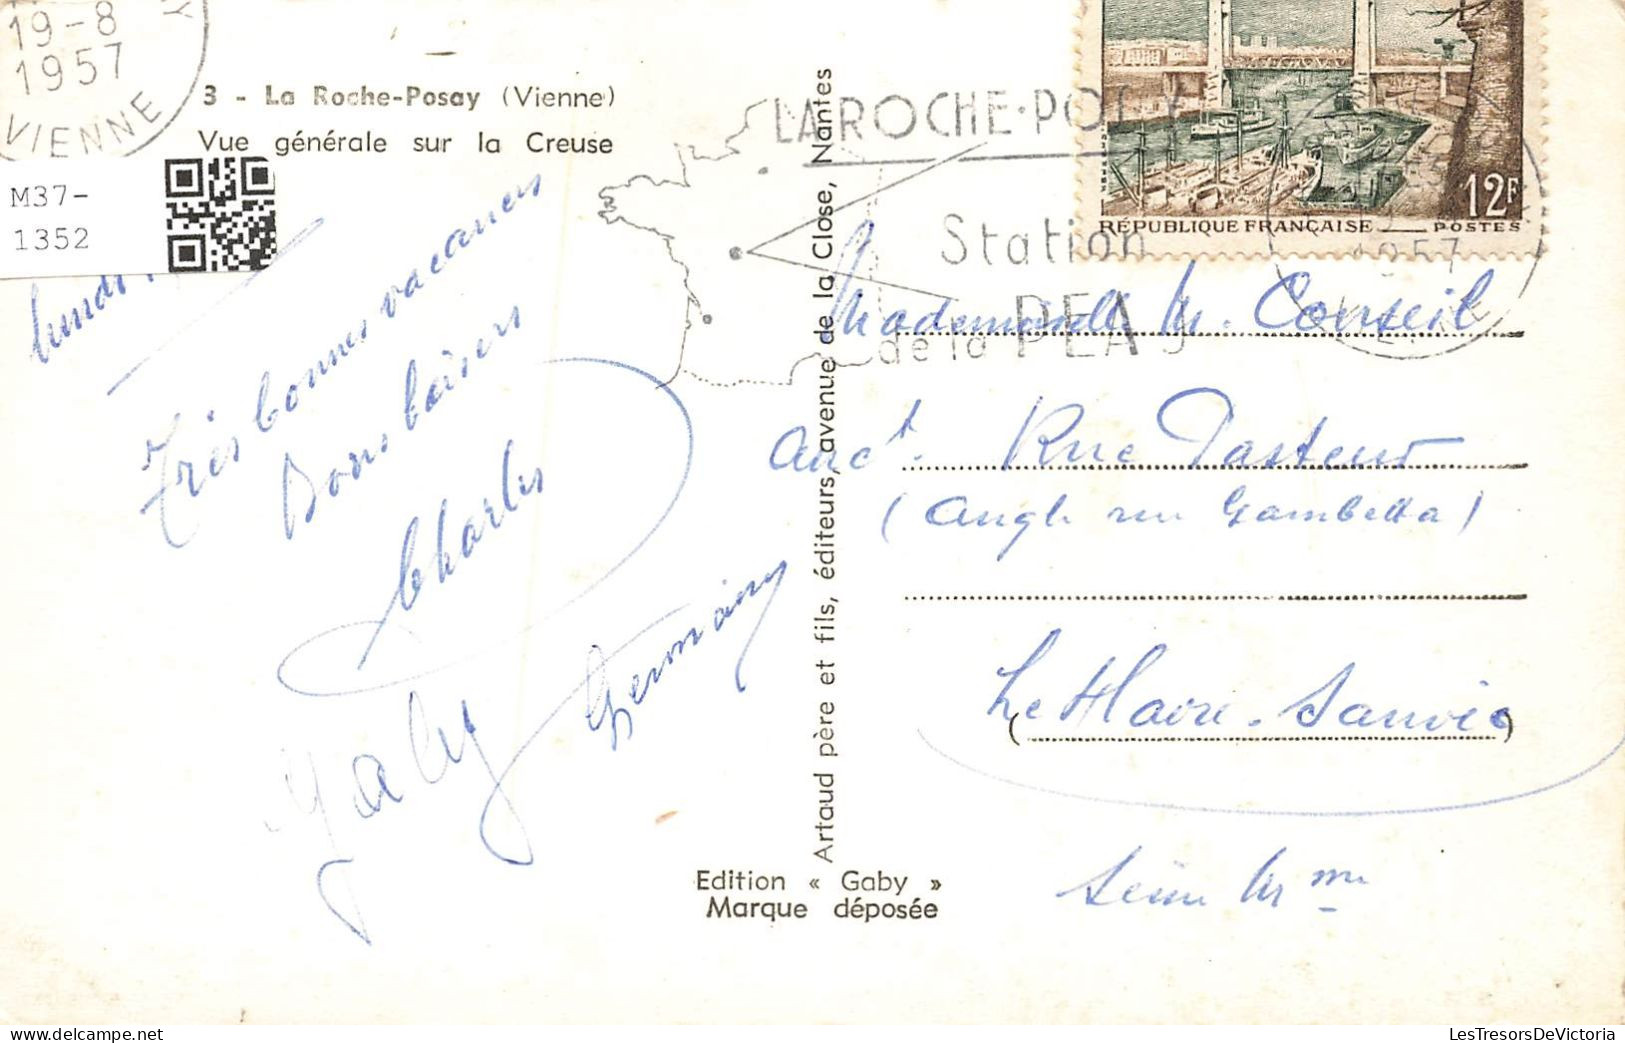 19-8
1957
VIENNE
3 - La Roche-Posay (Vienne)
Vue générale sur la Creuse
M37-
1352
LA ROCHE-POSAY
Station
de la PEAU
12F
RÉPUBLIQUE FRANÇAISE POSTES
1957
lundi
Très bonnes vacances
Bons baisers
Charles
Gaby
Germaine
Artaud père et fils, éditeurs, avenue de la Close, Nantes
Edition « Gaby »
Marque déposée
Mademoiselle M. Conseil
Anct. Rue Pasteur
(Angle rue Gambetta)
Le Havre. Sanvic
Seine Mme
LesTresorsDeVictoria.com